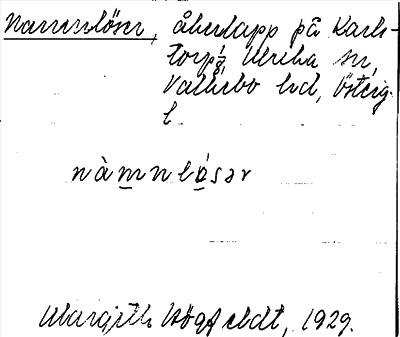 Namnlösr, åkerlapp på Karls-
torp, Ulrika sn,
Valkebo hd, Östergl.
nàmnlósər
Margith Högfeldt, 1929.